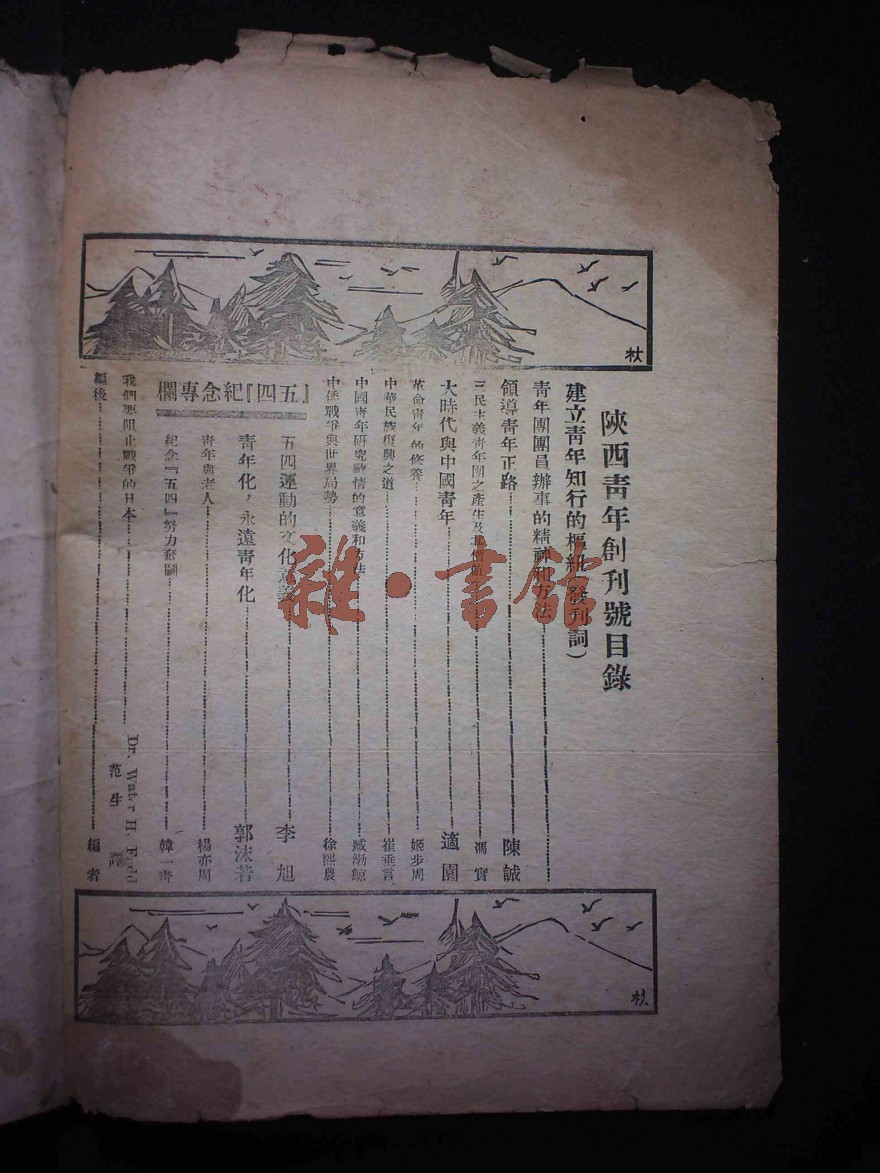 陝西靑年創刊號目錄
建立靑年知行的樞紐(發刊詞)
靑年團團員辦事的精神和方法
領導靑年正路 陳誠
三民主義靑年團之產生及其價值 馮實
大時代與中國靑年 適園
革命靑年的修養 姬步周
中華民族復興之道 崔垂言
中國靑年研究敵情的意義和方法 臧渤鯨
中倭戰爭與世界局勢 徐熙農
『五四』紀念專欄
五四運動的文化意義 李旭
靑年化,永遠靑年化 郭沫若
靑年與老人 楊亦周
紀念『五四』努力奮鬭 韓一靑
我們要阻止戰爭的日本 Dr. Water H.
范生 譯
編後 編者
杕
杕
雜·書館